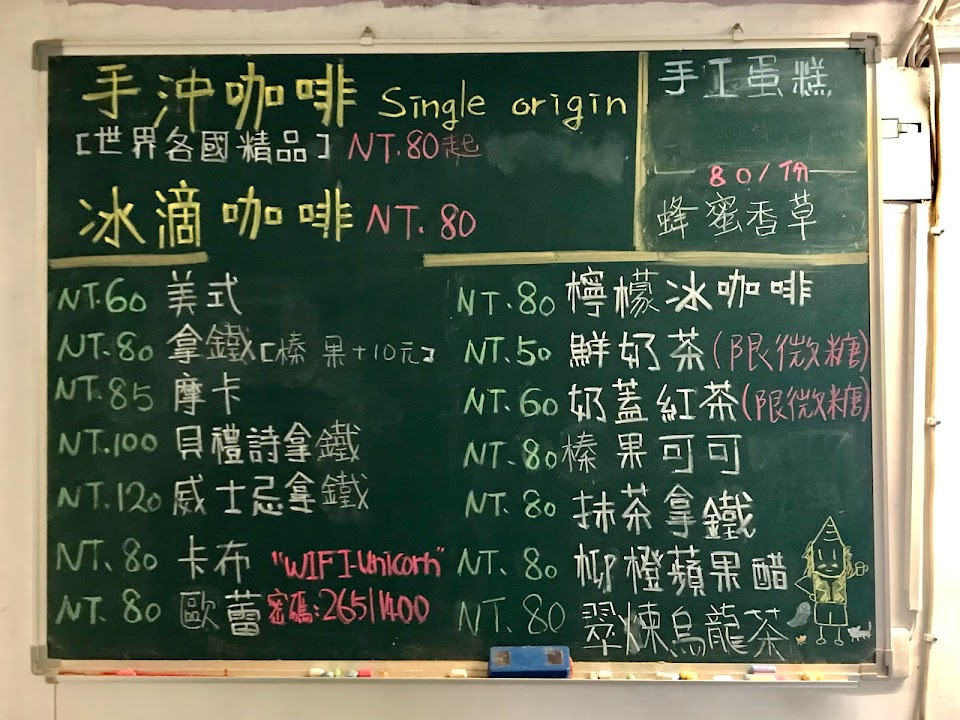 手沖咖啡 Single origin
[世界各國精品] NT.80起
冰滴咖啡 NT.80
手工蛋糕
80/份
蜂蜜香草
NT.60 美式
NT.80 拿鐵[榛果+10元]
NT.85 摩卡
NT.100 貝禮詩拿鐵
NT.120 威士忌拿鐵
NT.80 卡布 "WIFI-Unicorn"
NT.80 歐蕾 密碼:26511400
NT.80 檸檬冰咖啡
NT.50 鮮奶茶(限微糖)
NT.60 奶蓋紅茶(限微糖)
NT.80 榛果可可
NT.80 抹茶拿鐵
NT.80 柳橙蘋果醋
NT.80 翠煉烏龍茶